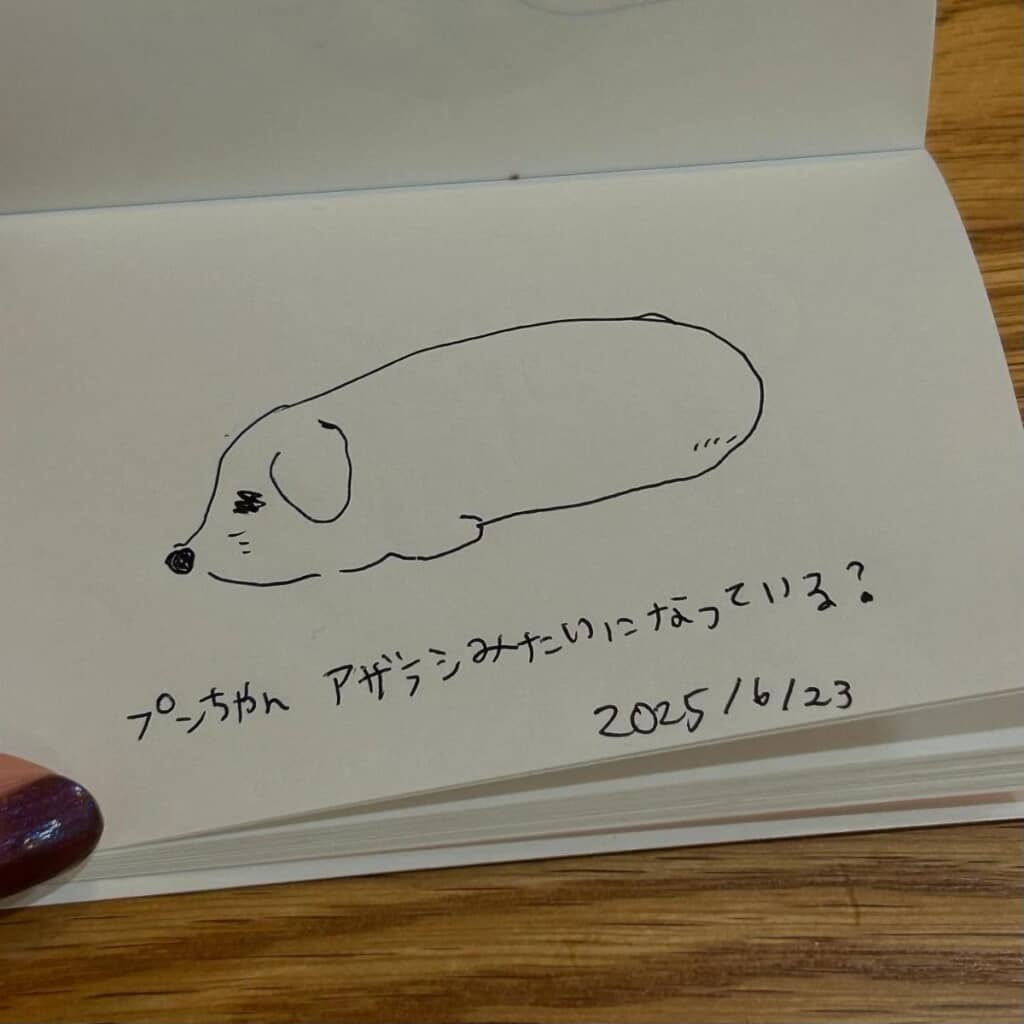 プンちゃん アザラシみたいになっている?
2025/6/23